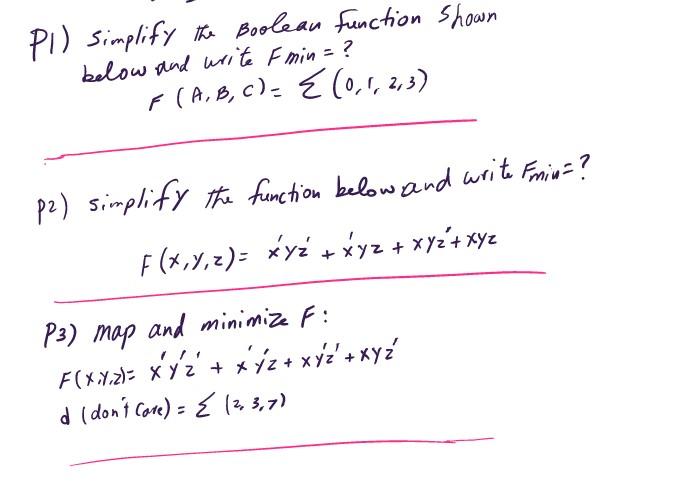 P1) Simplify the Boolean function shown
below and write Fmin = ?
F (A, B, C) = Σ (0, 1, 2, 3)
P2) simplify the function below and write Fmin = ?
F (x, y, z) = x'yz' + x'yz + xyz' + xyz
P3) map and minimize F:
F(x,y,z) = x'y'z' + x'y'z + xy'z' + xyz'
d (don't Care) = Σ (2, 3, 7)